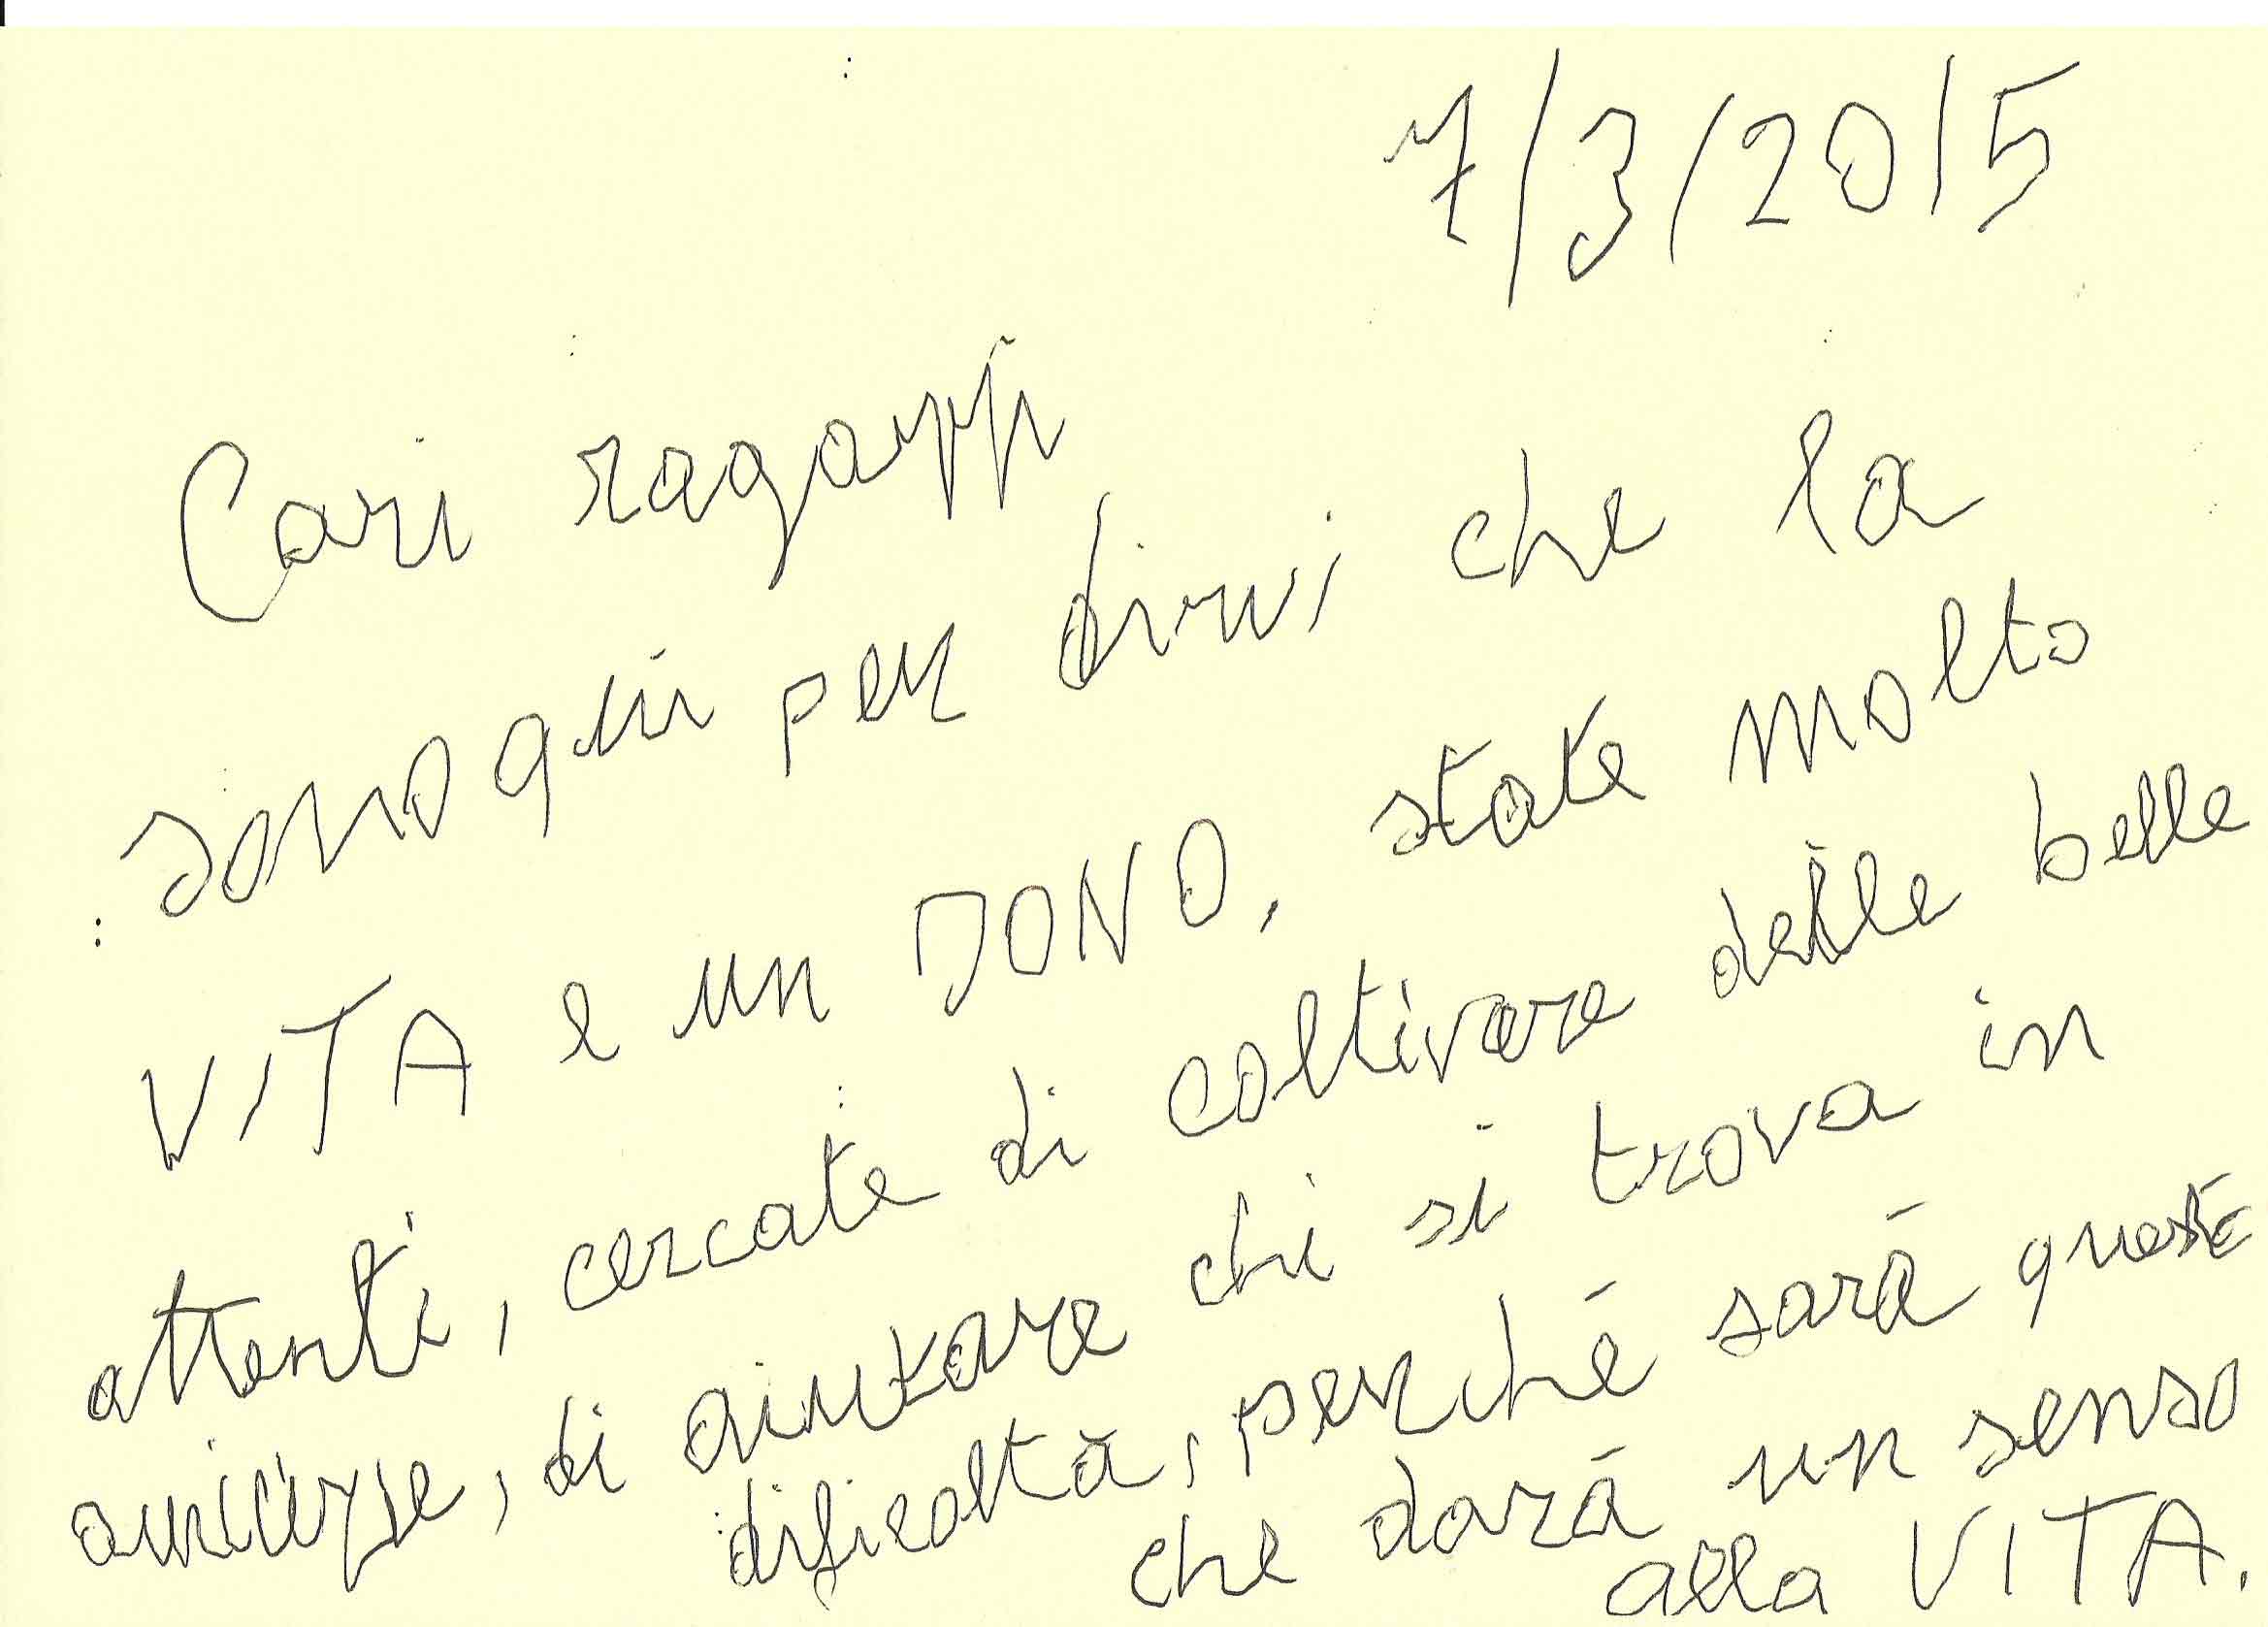 7/3/2015
Cari ragazzi
sono qui per dirvi che la
VITA e un DONO, state molto
attenti, cercate di coltivare delle belle
amicizie, di aiutare chi si trova in
dificoltà, perché sarà queste
che darà un senso
alla VITA.